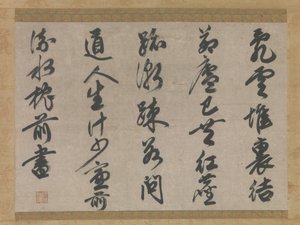 亂雲堆裏結
茅廬已共紅塵
跡漸疎莫問
道人生計事窓前
流水枕前書